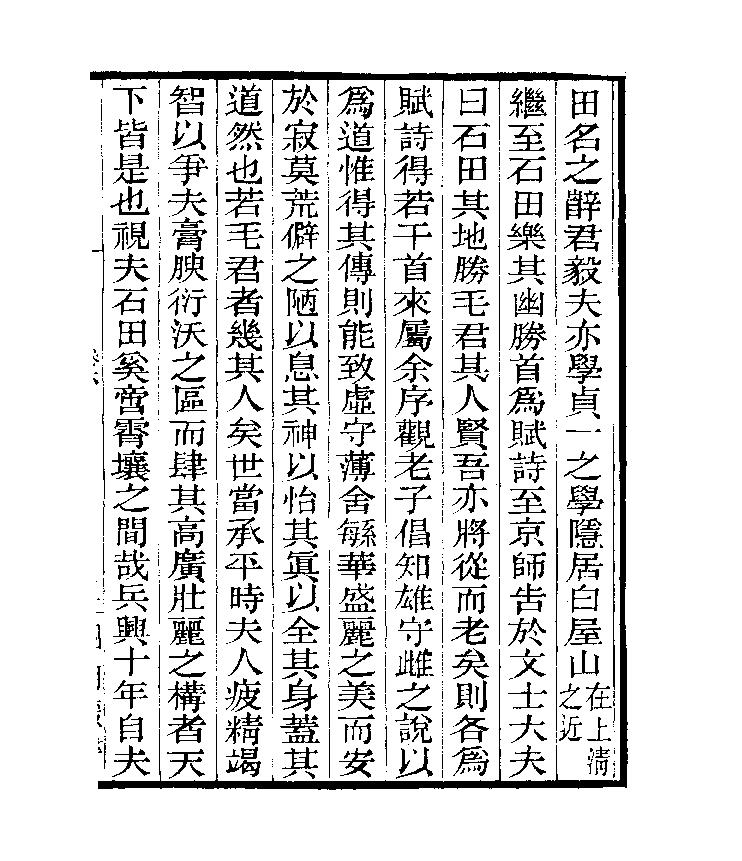 田名之辭君毅夫亦學貞一之學隱居白屋山在上清之近
繼至石田樂其幽勝首爲賦詩至京師告於文士大夫
曰石田其地勝毛君其人賢吾亦將從而老矣則各爲
賦詩得若干首來屬余序觀老子倡知雄守雌之說以
爲道惟得其傳則能致虛守薄舍緐華盛麗之美而安
於寂莫荒僻之陋以息其神以怡其眞以全其身蓋其
道然也若毛君者幾其人矣世當承平時夫人疲精竭
智以爭夫膏腴衍沃之區而肆其高廣壯麗之構者天
下皆是也視夫石田奚啻霄壤之間哉兵興十年自夫